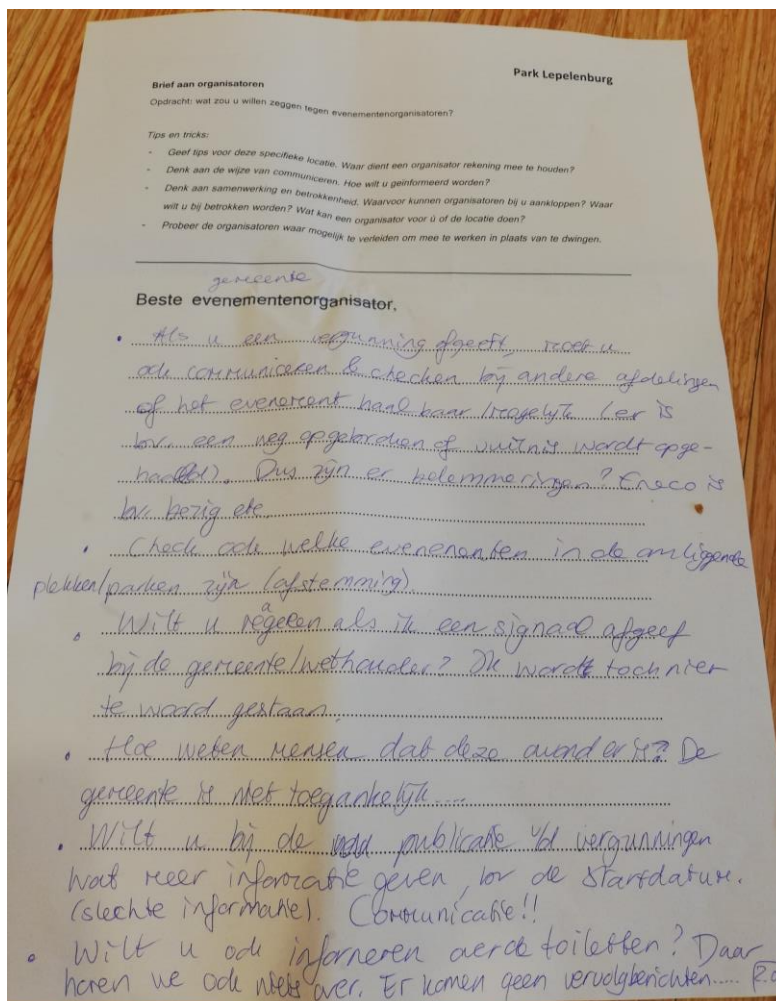 Park Lepelenburg
Brief aan organisatoren
Opdracht: wat zou u willen zeggen tegen evenementenorganisatoren?
Tips en tricks:
- Geef tips voor deze specifieke locatie. Waar dient een organisator rekening mee te houden?
- Denk aan de wijze van communiceren. Hoe wilt u geinformeerd worden?
- Denk aan samenwerking en betrokkenheid. Waarvoor kunnen organisatoren bij u aankloppen? Waar
wilt u bij betrokken worden? Wat kan een organisator voor ú of de locatie doen?
- Probeer de organisatoren waar mogelijk te verleiden om mee te werken in plaats van te dwingen.
gemeente
Beste evenementenorganisator,
• Als u een vergunning afgeeft, moet u
ook communiceren & checken bij andere afdelingen
of het evenement haalbaar/mogelijk (er is
bv. een weg opgebroken of vuilnis wordt opge-
haald). Dus zijn er belemmeringen? Eneco is
bv. bezig etc.
• Check ook welke evenementen in de omliggende
plekken/parken zijn (afstemming).
• Wilt u reageren als ik een signaal afgeef
bij de gemeente/wethouder? Ik wordt toch niet
te woord gestaan.
• Hoe weten mensen dat deze avond er is? De
gemeente is niet toegankelijk....
• Wilt u bij de publicatie v/d vergunningen
wat meer informatie geven, bv de startdatum.
(slechte informatie). Communicatie!!
• Wilt u ook informeren over de toiletten? Daar
horen we ook niets over. Er komen geen vervolgberichten.....